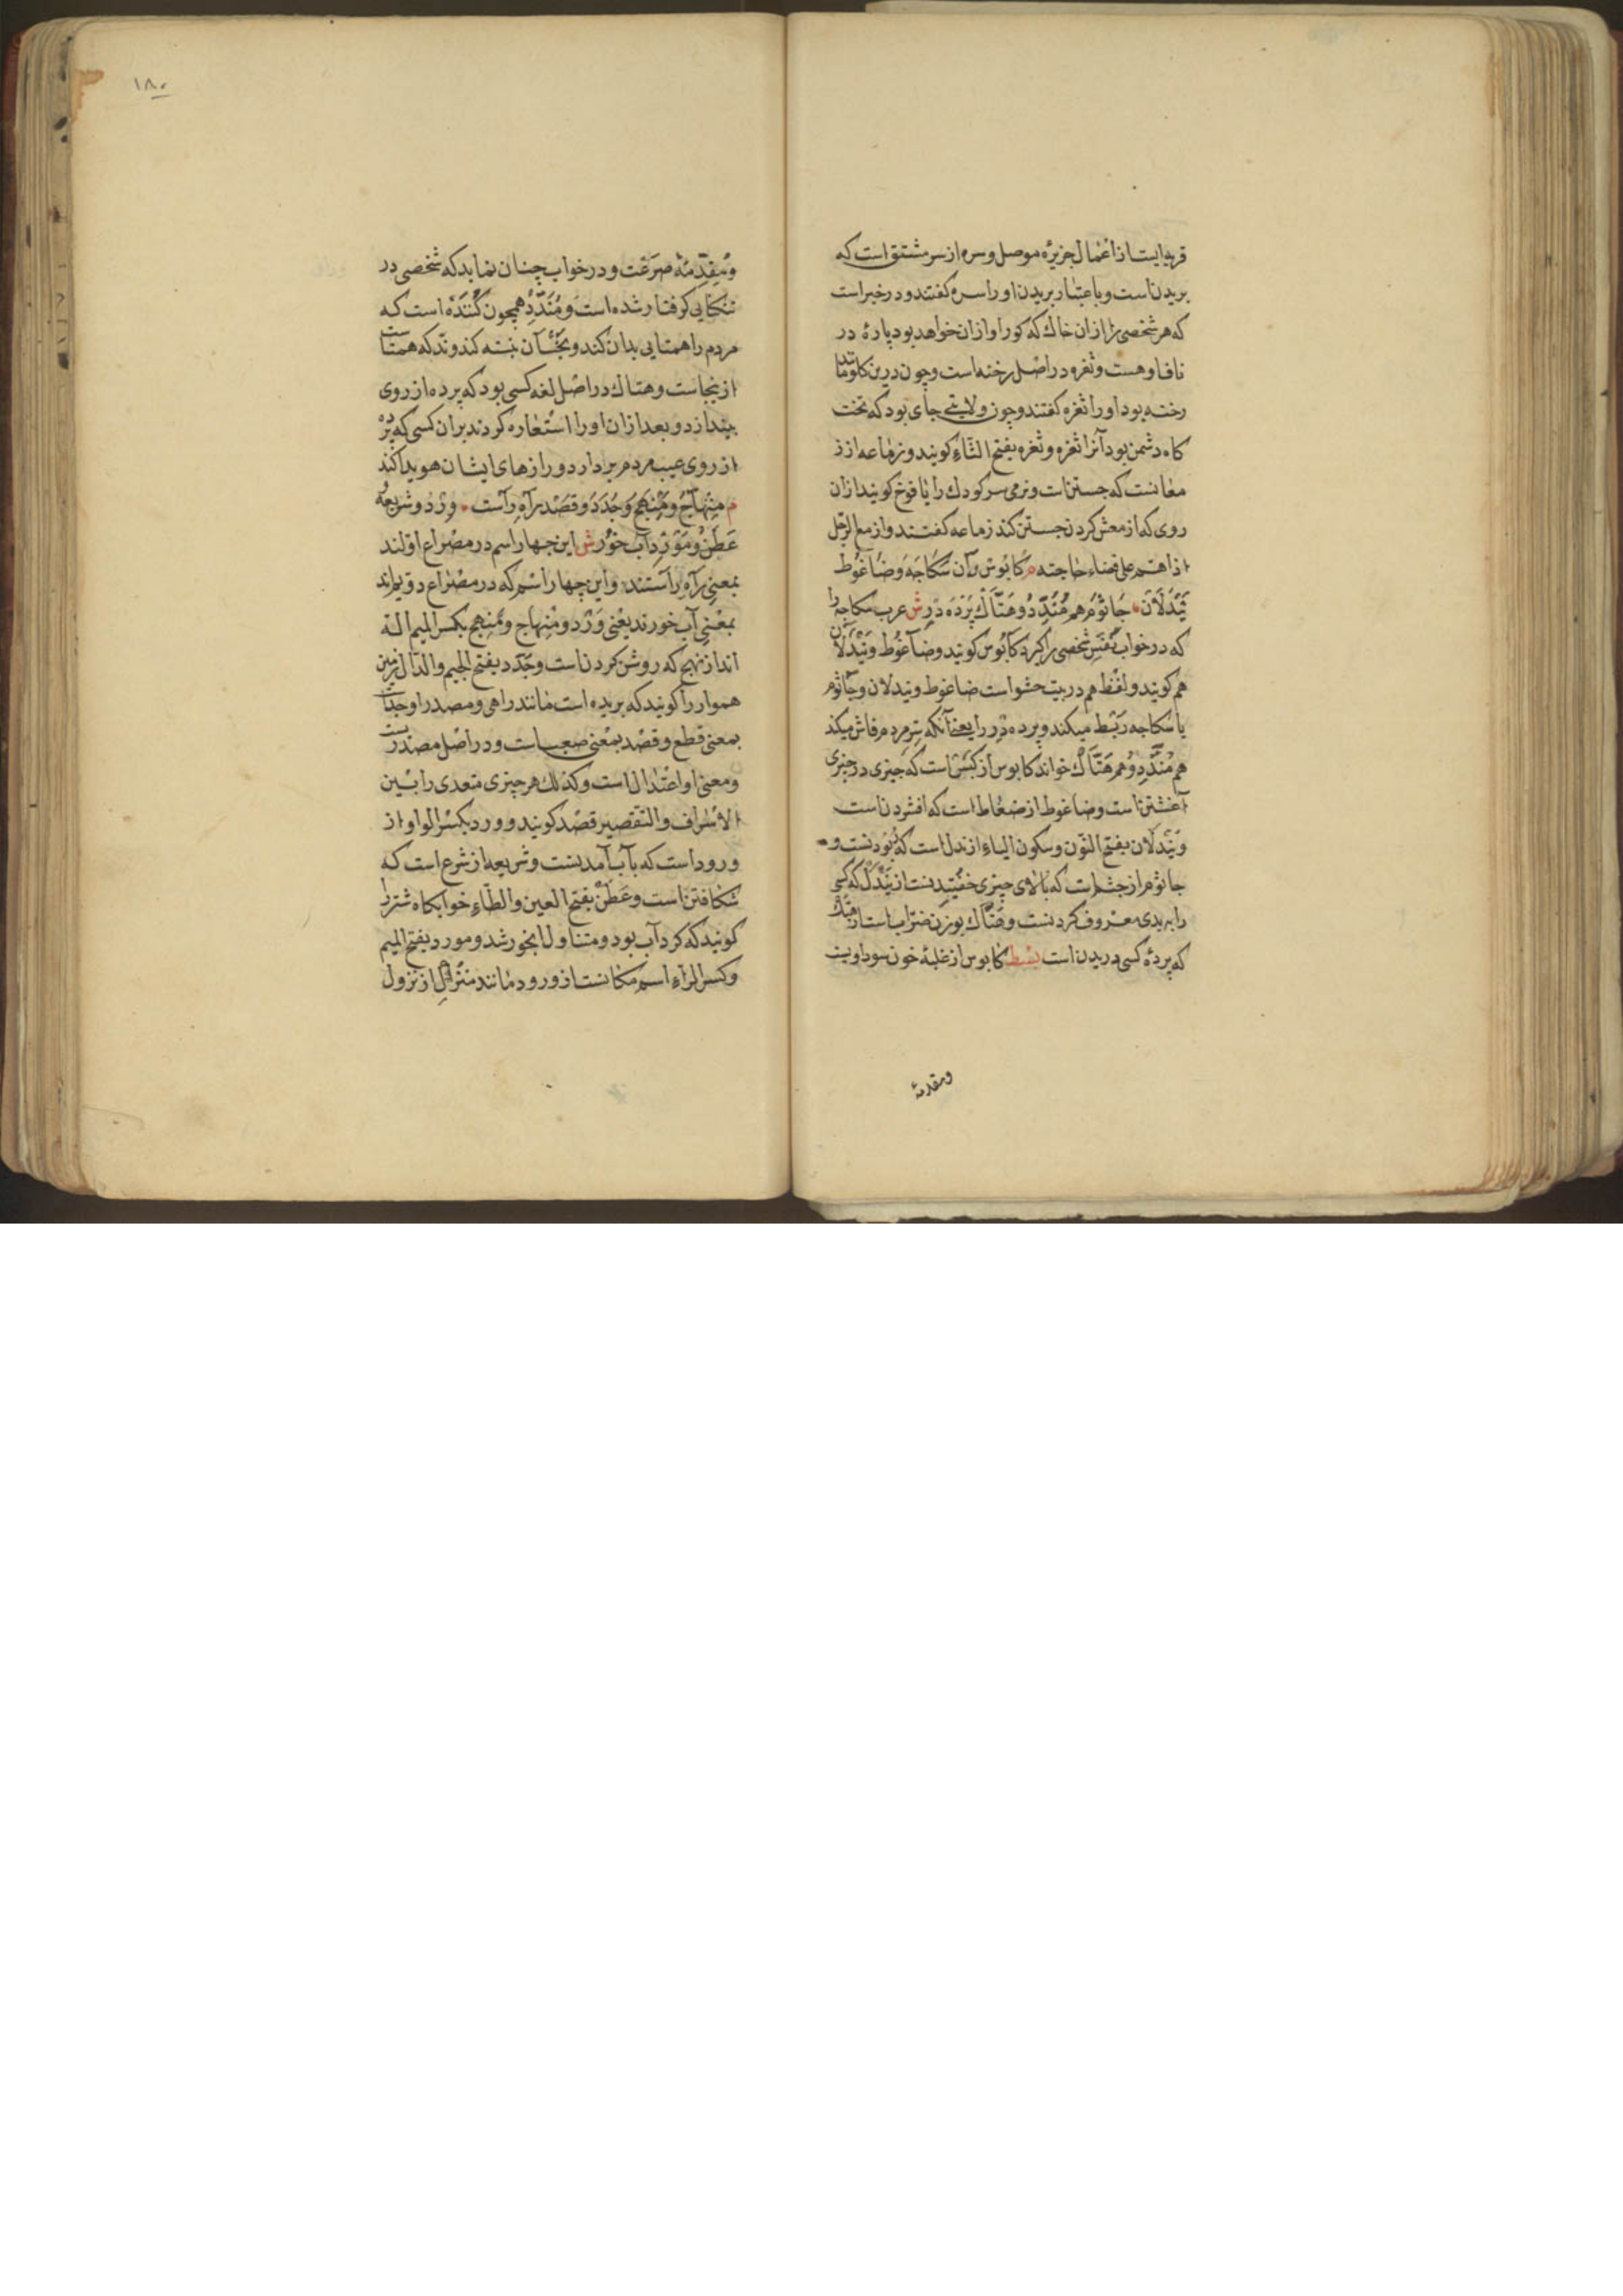 قریه ایست از اعمال جزیرهٔ موصل و سره از سر مشتق است که
بریدن است و باعتبار بریدن او را سره کفتند و در خبر است
که هر شخصی را از ان خاك که کور او از ان خواهد بود پارهٔ در
ناف او هست و ثغره در اصل رخنه است و چون درین کلو مانند
رخنه بود او را ثغره کفتند و چون ولایتی جای بود که تخت
کاه دشمن بود آنرا ثغره و ثغره بفتح الثاء کویند و زماعه از ز
معانست که جستن است و نرمی سر کودك را یافوخ کویند از ان
روی که از معش کردن جستن کند زماعه کفتند و از مع الرجل
اذا هتم علی قضاء حاجته م کابوس دان سکاجه و ضاغوط
نیدلان جاثوم هم مندد و هتاك پرده در ش عرب سکاجه را
که در خواب نفس شخصی را کیرد کابوس کویند و ضاغوط و نیدلان
هم کویند و لفظ هم در بیت حشو است ضاغوط و نیدلان و جاثوم
با سکاجه ربط میکند و پرده در را یعنی آنکه سر مردم فاش میکند
هم مندد و هم هتاك خواند کابوس از کبس است که چیزی در چیزی
آغشتن است و ضاغوط از ضغاط است که افشردن است
و نیدلان بفتح النون و سکون الیاء از ندل است که ربودنست و
جاثوم از جثم است که بالای چیزی خفتیدنست از ندل که کسی
را به بدی معروف کردنست و هتاك بوزن ضراب است از هتك
که پردهٔ کسی دریدن است بسط کابوس از غلبهٔ خون سوداویت
ومقدمهٔ
۱۸۰
و مقدمهٔ صرعت و در خواب چنان نماید که شخصی در
تنکنایی کرفتار شده است و مندد همچون کننده است که
مردم را همتایی بدان کند و بجّسآن نسبه کند و ند که همتاست
از ینجاست و هتاك در اصل لغه کسی بود که پرده از روی
بیندازد و بعد از ان او را استعاره کردند بر ان کسی که پرده
از روی عیب مردم بردارد و رازهای ایشان هویدا کند
م منهاج و منهج و جدد و قصد راه راست ورد و شریعه
عطن و مورد آب خور ش این چهار اسم در مصراع اولند
بمعنی راه راستند و این چهار اسم که در مصراع دویم اند
بمعنی آب خورند یعنی ورد و منهاج و منهج بکسر المیم الة
اند از نهج که روشن کردن است و جدد بفتح الجیم و الدال زمین
هموار را کویند که بریده است مانند راهی و مصدر او جدا
بمعنی قطع و قصد بمعنی صعب است و در اصل مصدر است
و معنی او اعتدال است و کذلك هر چیزی متعدی را بین
الاسراف و التقصیر قصد کویند و ورد بکسر الواو از
ورود است که بآب آمدنست و شریعه از شرع است که
شکافتن است و عطن بفتح العین و الطاء خوابکاه شتر را
کویند که کرد آب بود و متناول آبخور شد و مورد بفتح المیم
و کسر الراء اسم مکانست از ورود مانند منزل از نزول